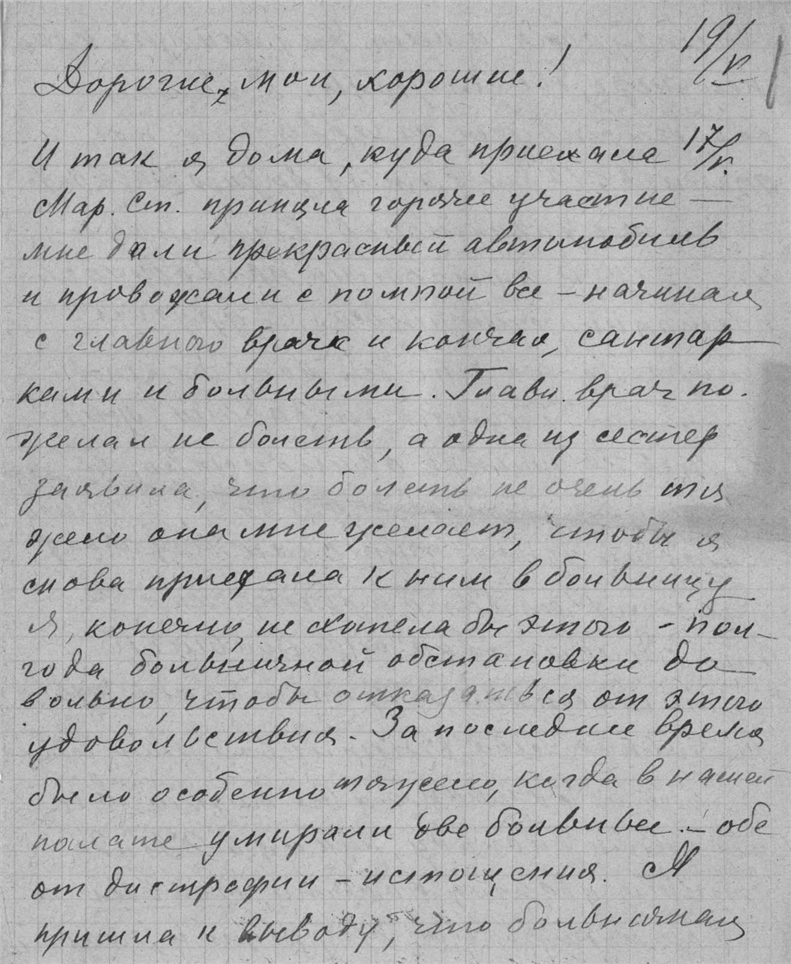 19/V
Дорогие, мои, хорошие!
И так я дома, куда приехала 17/V.
Мар. Ст. приняла горячее участие —
мне дали прекрасный автомобиль
и провожали с помпой все – начиная
с главного врача и кончая, санитар
ками и больными. Главн. врач по.
желал не болеть, а одна из сестер
заявила, что болеть не очень тя
жело она мне желает, чтобы я
снова приехала к ним в больницу
Я, конечно, не хотела бы этого – пол–
года больничной обстановки до
вольно, чтобы отказаться от этого
удовольствия. За последнее время
было особенно тяжело, когда в нашей
палате умирали две больные – обе
от дистрофии – истощения. Я
пришла к выводу, что больничная